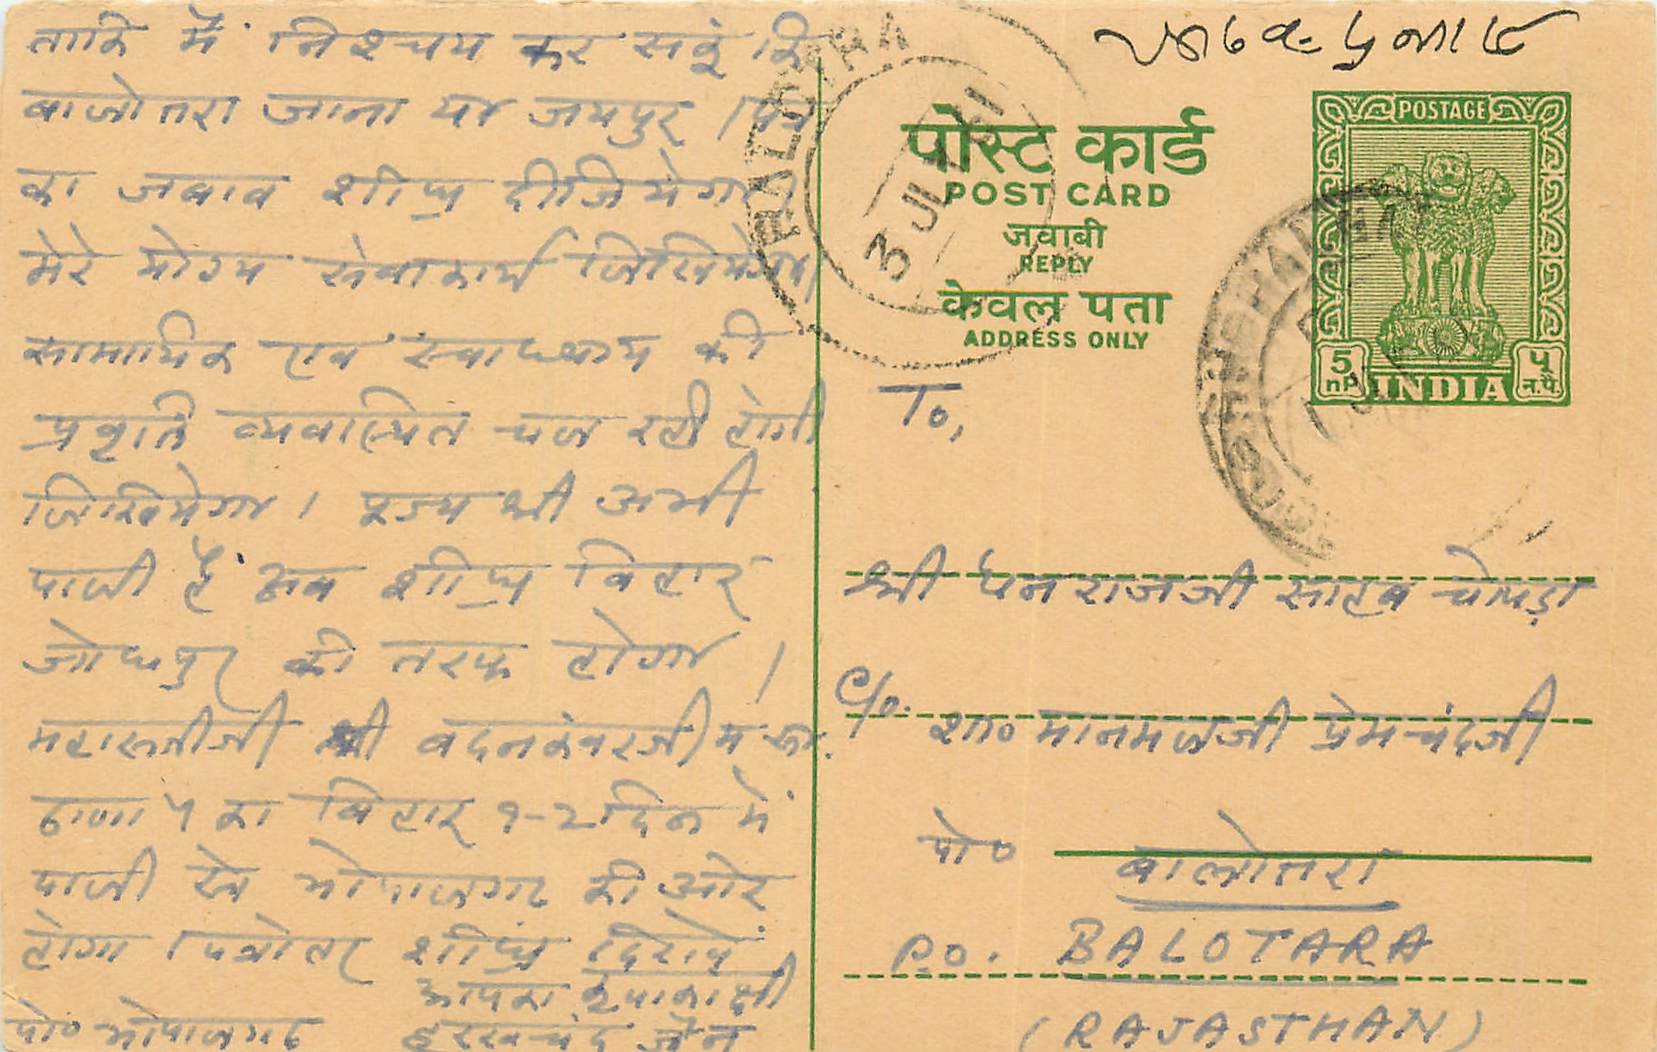 ताकि मैं निश्चय कर सकूं कि
बालोतरा जाना या जयपुर । पत्र
का जवाब शीघ्र दीजियेगा।
मेरे योग्य सेवाकार्य लिखियेगा।
सामायिक एवं स्वाध्याय की
प्रवृति व्यवास्थित चल रही होगी
लिखियेगा । पूज्य श्री अभी
पाली हैं अब शीघ्र विहार
जोधपुर की तरफ होगा ।
महासतीजी श्री वदनकंवरजी म.सा.
ठाणा ५ का विहार १-२ दिन में
पाली से भोपालगढ की ओर
होगा । पत्रोतर शीघ्र दिरावें
आपका कृपाकांक्षी
पो० भोपालगढ हरखचंद जैन
BALOTARA
3 JUL 61
पोस्ट कार्ड
POST CARD
जवाबी
REPLY
केवल पता
ADDRESS ONLY
POSTAGE
5 nP
INDIA
५ न.पै.
To,
श्री धनराजजी साहब चोपड़ा
C/o. शा० मानमलजी प्रेमचंदजी
पो० बालोतरा
P.O. BALOTARA
(RAJASTHAN)